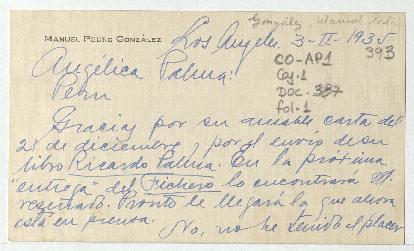 González, Manuel Pedro
MANUEL PEDRO GONZÁLEZ
Los Angeles, 3-II-1935
393
CO-AP1
Caj. 1
DOC. 387
fol. 1
Angélica Palma:
Perú
Gracias por su amable carta del
28 de diciembre y por el envío de su
libro Ricardo Palma. En la próxima
"entrega" del Fichero lo encontrará
reseñado. Pronto le llegará la que ahora
está en prensa.
No, no he tenido el placer